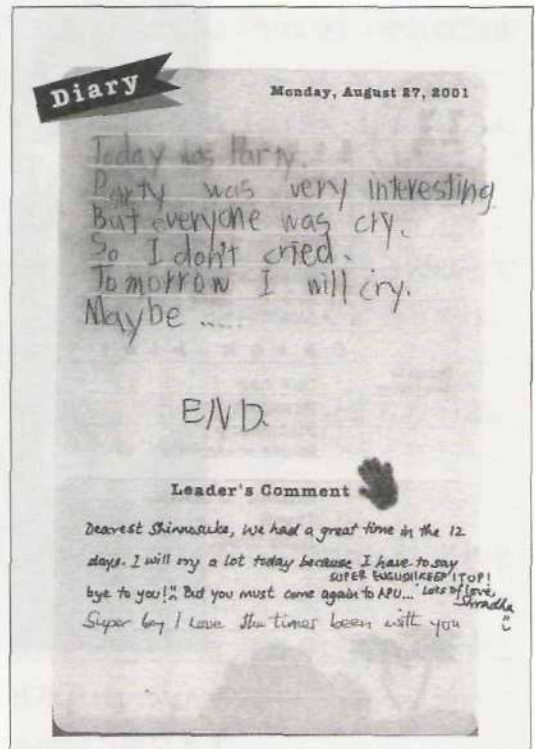 Diary
Monday, August 27, 2001
Today was Party.
Party was very interesting
But everyone was cry.
So I don't cried.
Tomorrow I will cry.
Maybe .....
END.
Leader's Comment
Dearest Shinnosuke, we had a great time in the 12
days. I will cry a lot today because I have to say
SUPER ENGLISH! KEEP IT UP!
bye to you! But you must come again to APU... Lots of love,
Shradha
Super boy I love the times been with you